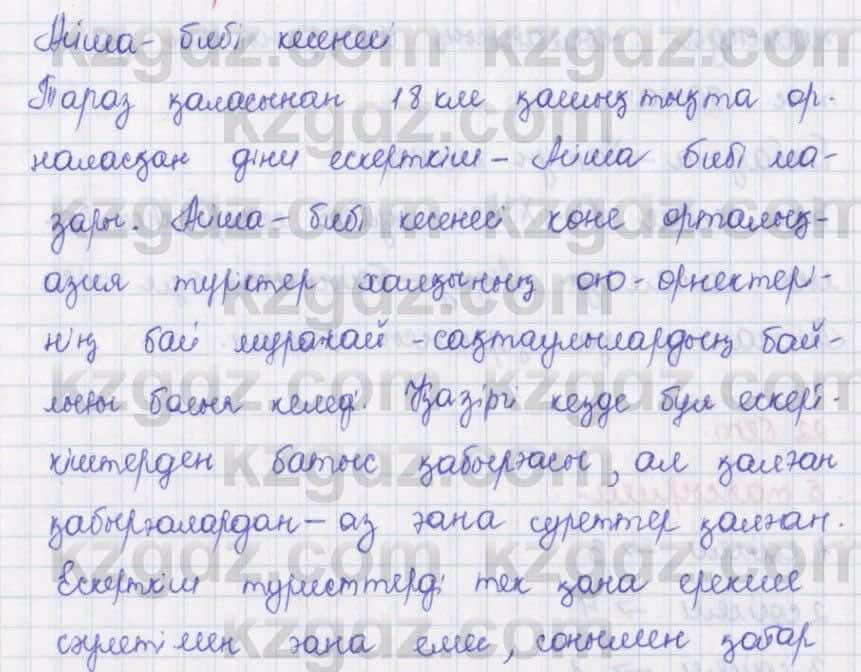 Айша-бибі кесенесі
Тараз қаласынан 18 км қашықтықта ор-
наласқан діни ескерткіш - Айша бибі ма-
зары. Айша-бибі кесенесі көне орталық-
азия түріктер халқының ою-өрнектері-
нің бай мұражай-сақтаушылардың бай-
лығы болып келеді. Қазіргі кезде бұл ескерт-
кіштерден батыс қабырғасы, ал қалған
қабырғалардан - аз ғана суреттер қалған.
Ескерткіш туристтерді тек қана ерекше
сәулетімен ғана емес, сонымен қабар
kzgdz.com